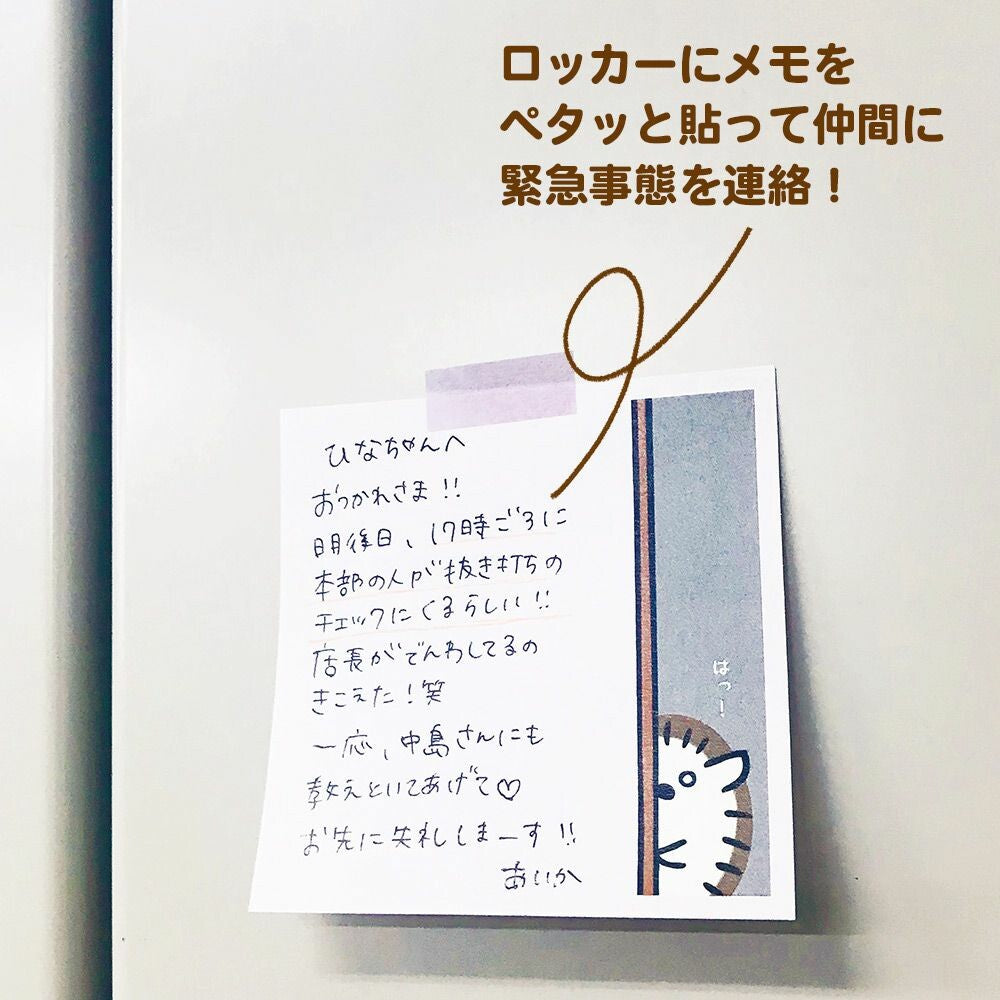 ロッカーにメモを
ペタッと貼って仲間に
緊急事態を連絡！
ひなちゃんへ
おつかれさま!!
明後日、17時ごろに
本部の人が抜き打ちの
チェックにくるらしい!!
店長がでんわしてるの
きこえた！笑
一応、中島さんにも
教えといてあげて♡
お先に失礼しまーす!!
あいか
はっ！